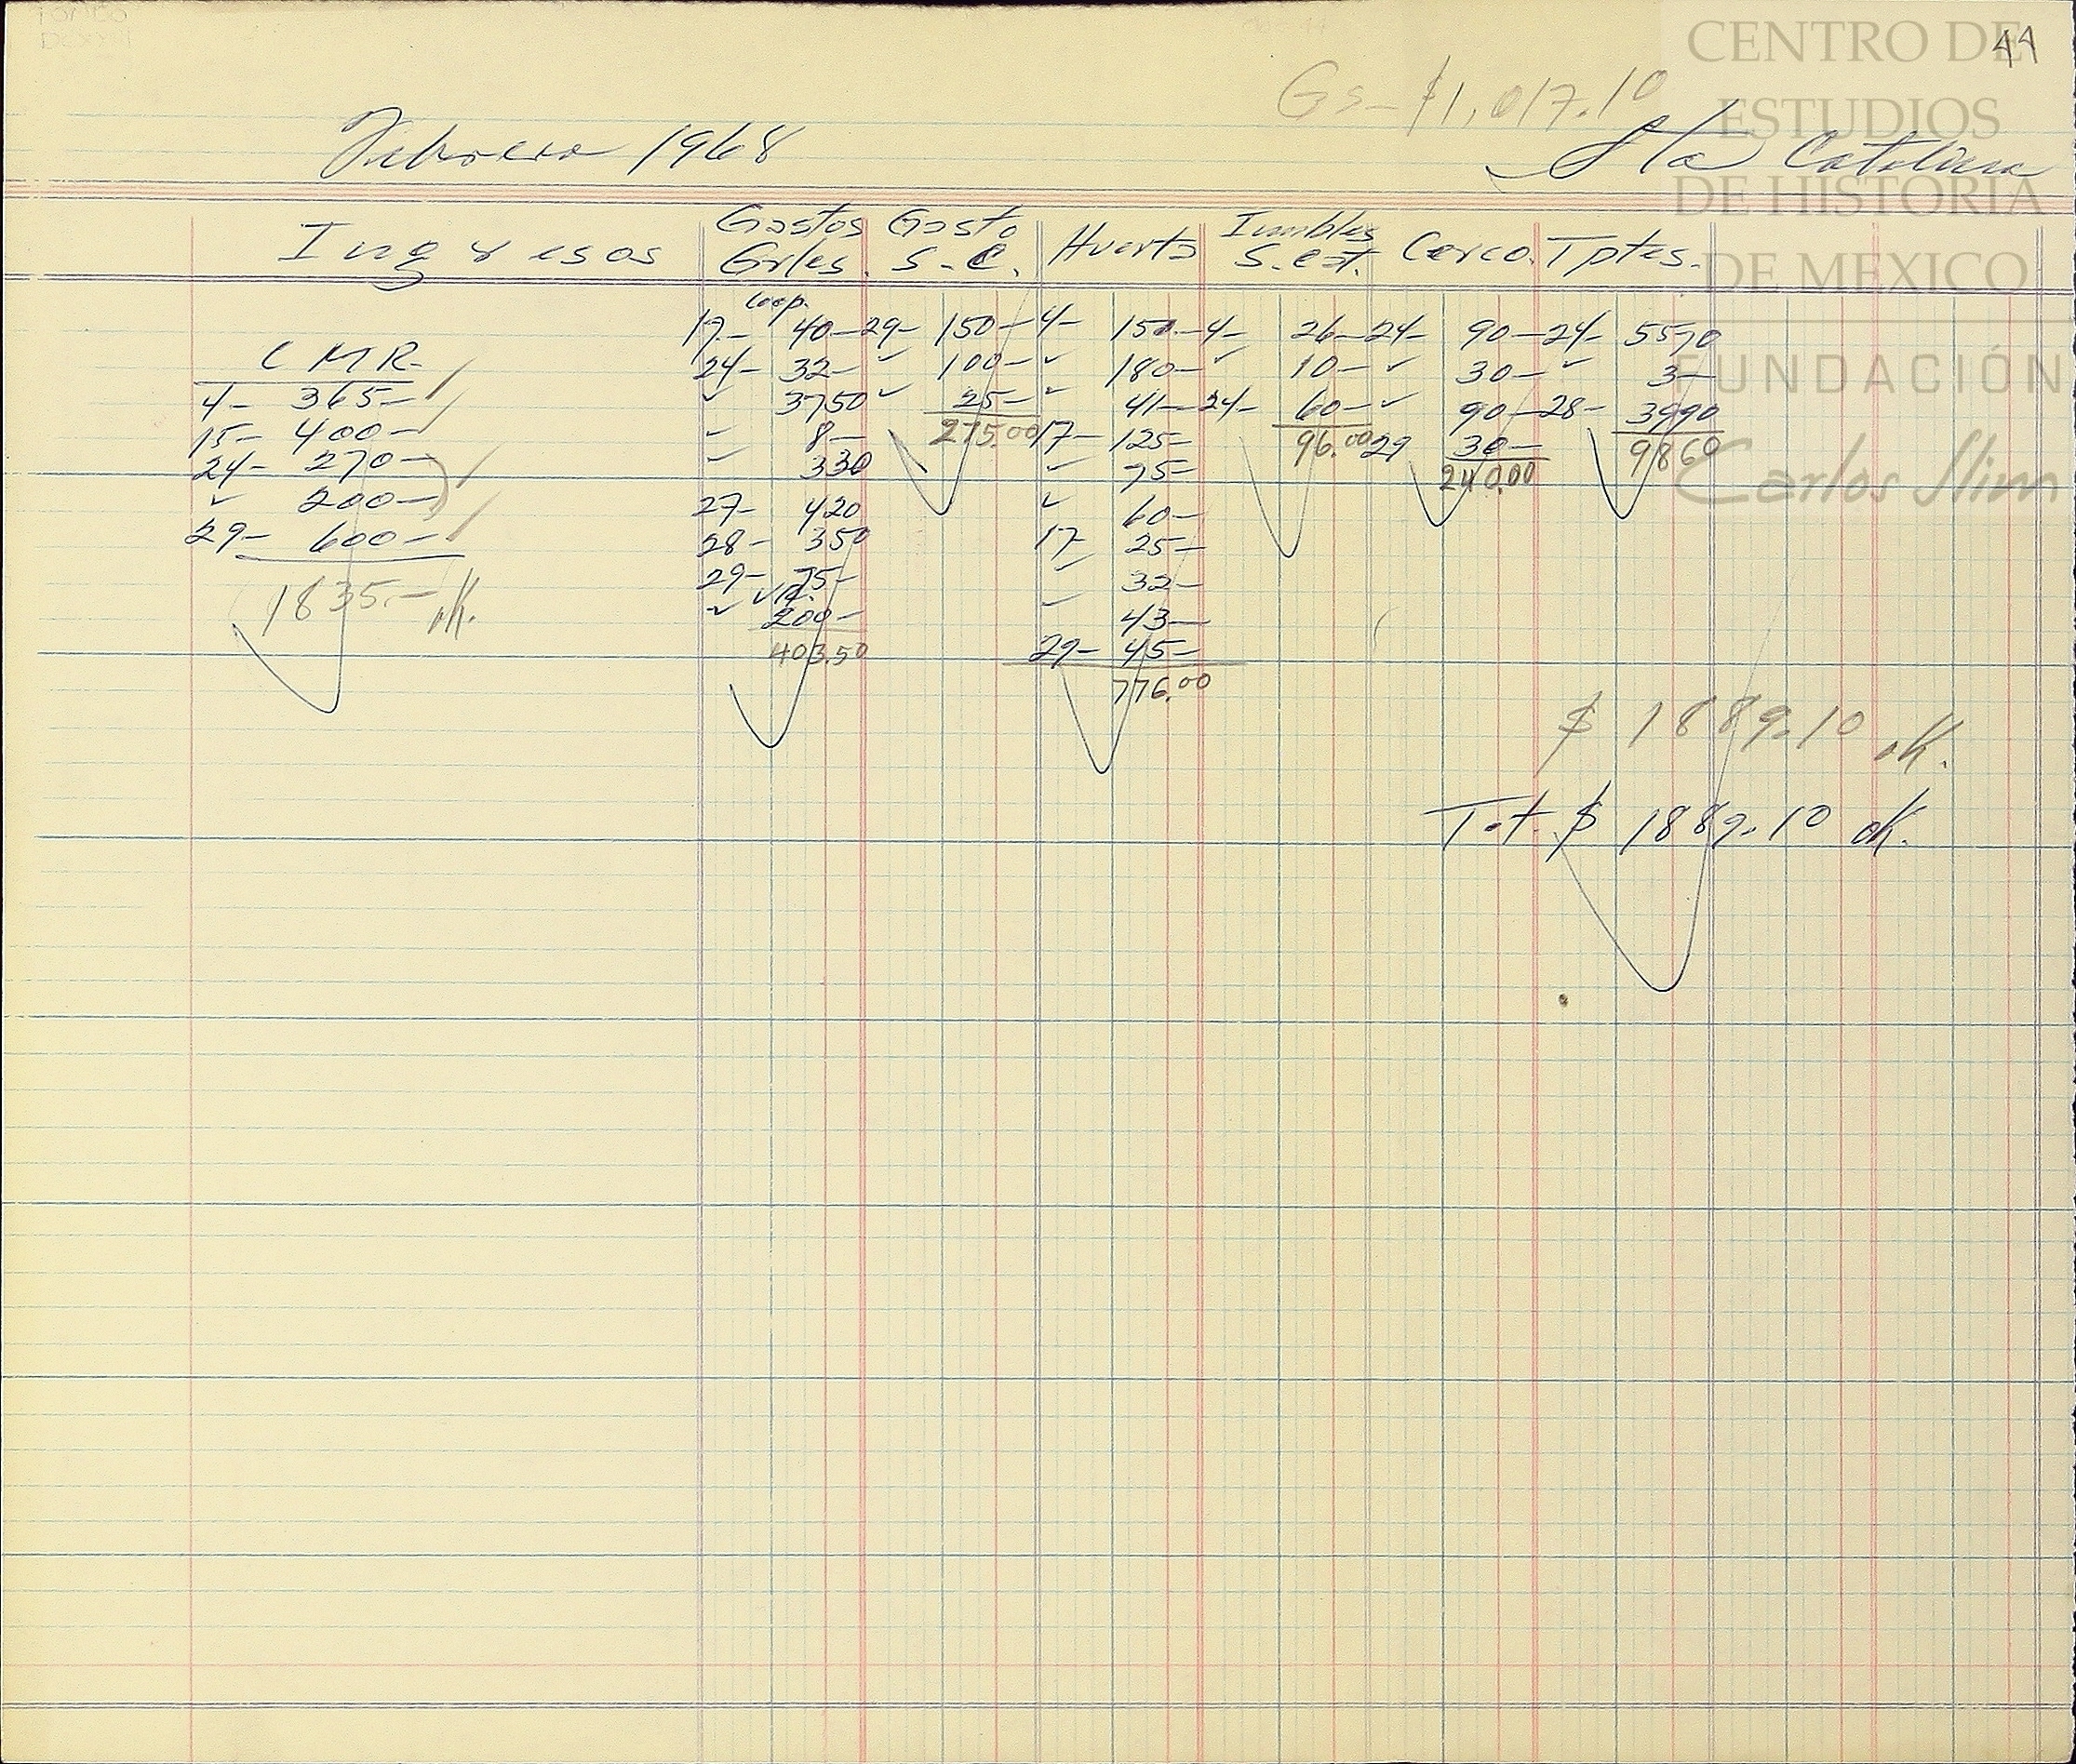 44
Gs— $1,017.10
Febrero 1968 Sta Catalina
Ingresos Gastos Grles. Gasto S.C. Huerta Imbles S. Cat. Cerco. Tptes.
C M R—
4— 365—
15— 400—
24— 270—
✓ 200—
29— 600—
1835.— ok.
Coop.
17— 40—
24— 32—
✓ 3750
✓ 8—
✓ 330
27— 420
28— 350
29— 75—
✓ 200—
403.50
29— 150—
✓ 100—
✓ 25—
275.00
4— 150—
✓ 180—
✓ 41—
17— 125—
✓ 75—
✓ 60—
17 25—
✓ 32—
✓ 43—
29— 45—
776.00
4— 26—
✓ 10—
24— 60—
96.00
24— 90—
✓ 30—
✓ 90—
29 30—
240.00
24— 5570
✓ 3—
28— 3990
9860
$ 1889.10 ok.
Tot. $ 1889.10 ok.
CENTRO DE
ESTUDIOS
DE HISTORIA
DE MEXICO
FUNDACIÓN
Carlos Slim